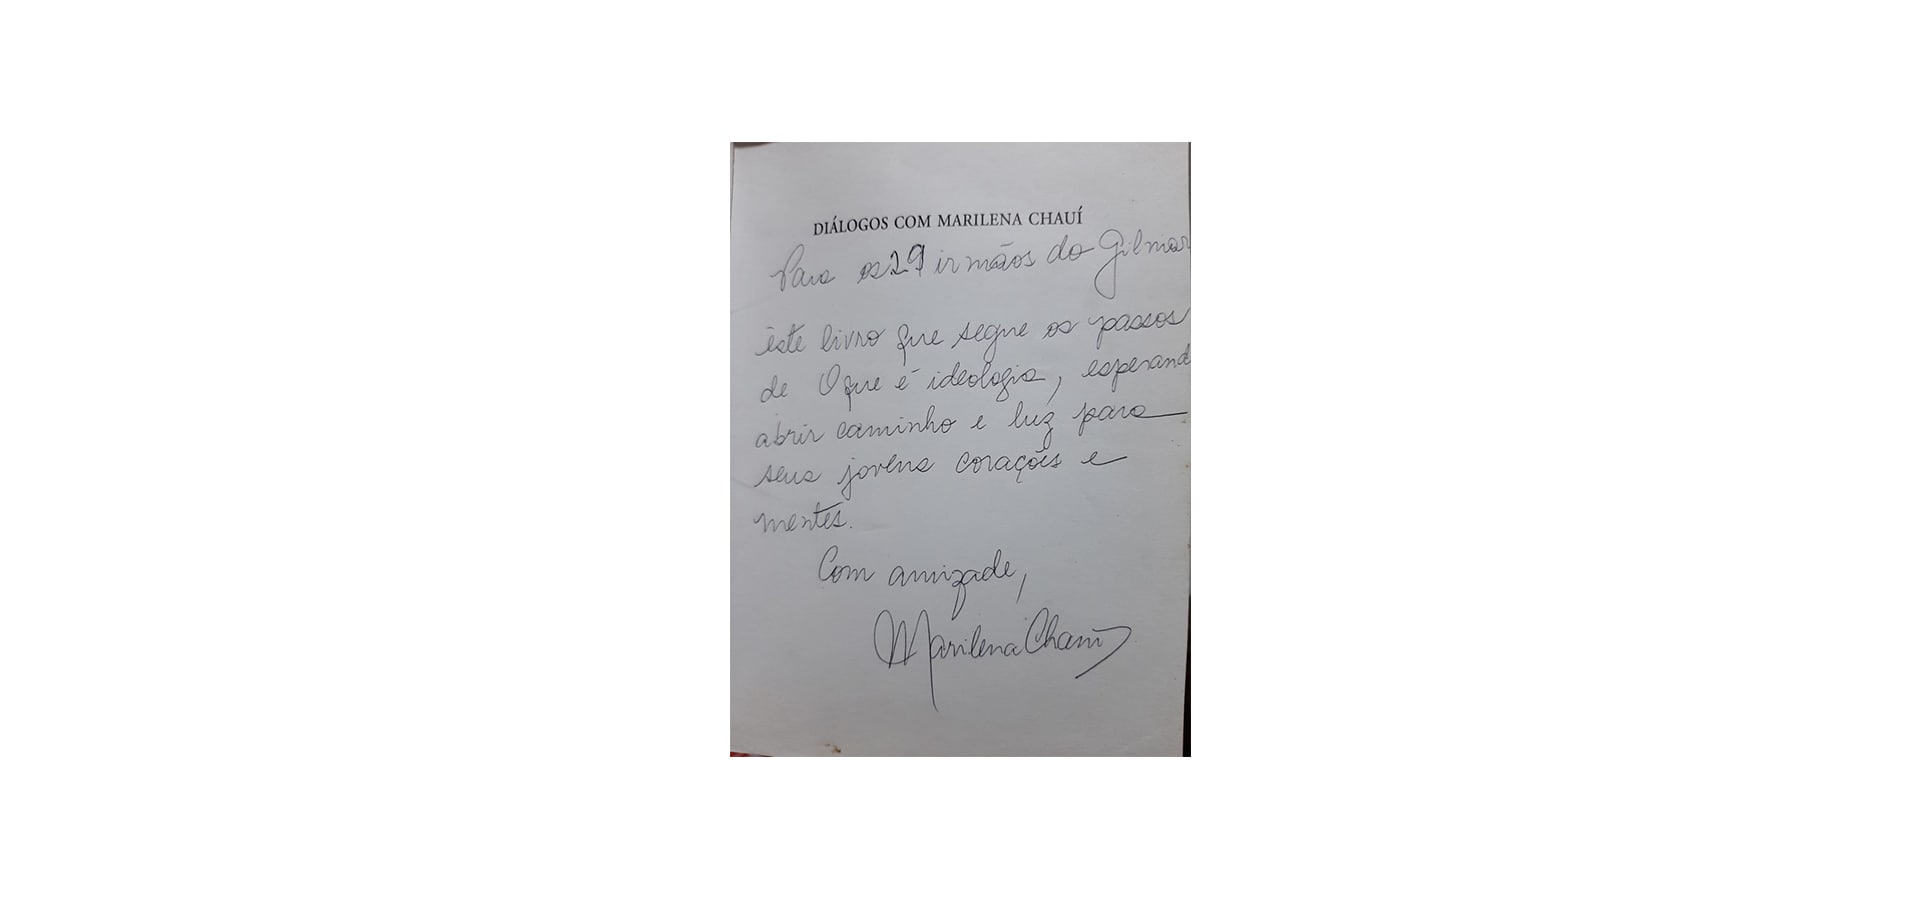 DIÁLOGOS COM MARILENA CHAUÍ
Para os 29 irmãos do Gilmar
este livro que segue os passos
de O que é ideologia, esperand
abrir caminho e luz para
seus jovens corações e
mentes.
Com amizade,
Marilena Chauí